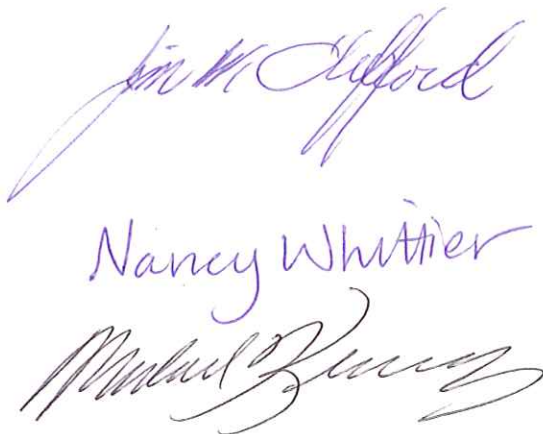 Jim M Clifford
Nancy Whittier
Michael